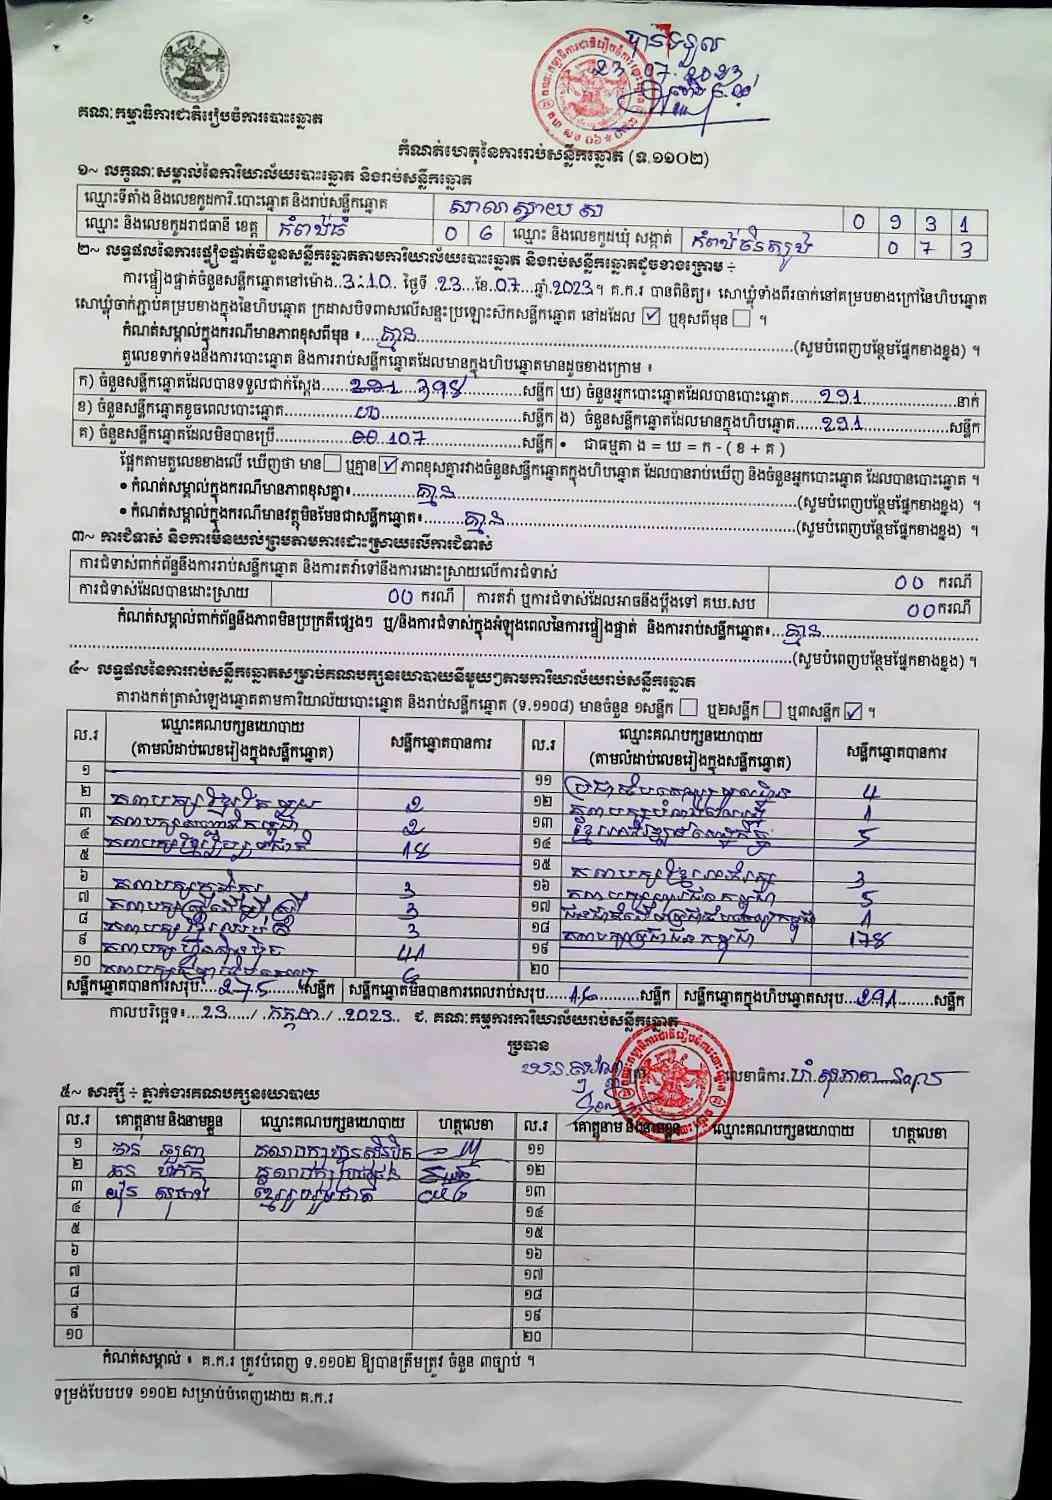 គណៈកម្មាធិការជាតិរៀបចំការបោះឆ្នោត
បានទទួល
23 07. 2023
កំណត់ហេតុនៃការរាប់សន្លឹកឆ្នោត (ទ.១១០២)
១~ លក្ខណៈសម្គាល់នៃការិយាល័យបោះឆ្នោត និងរាប់សន្លឹកឆ្នោត
ឈ្មោះទីតាំង និងលេខកូដការិ.បោះឆ្នោត និងរាប់សន្លឹកឆ្នោត សាលាស្វាយ 0 9 3 1
ឈ្មោះ និងលេខកូដរាជធានី ខេត្ត កំពង់ធំ 0 6 ឈ្មោះ និងលេខកូដឃុំ សង្កាត់ កំពង់ចិនត្បូង 0 7 3
២~ លទ្ធផលនៃការផ្ទៀងផ្ទាត់ចំនួនសន្លឹកឆ្នោតតាមការិយាល័យបោះឆ្នោត និងរាប់សន្លឹកឆ្នោតដូចខាងក្រោម ÷
ការផ្ទៀងផ្ទាត់ចំនួនសន្លឹកឆ្នោតនៅម៉ោង.3:10. ថ្ងៃទី .23...ខែ.07...ឆ្នាំ.2023។ គ.ក.រ បានពិនិត្យ៖ សោឃ្លុំទាំងពីរចាក់នៅគម្របខាងក្រៅនៃហិបឆ្នោត
សោឃ្លុំចាក់ភ្ជាប់គម្របខាងក្នុងនៃហិបឆ្នោត ក្រដាសបិទពាសលើសន្ទះប្រឡោះស៊កសន្លឹកឆ្នោត នៅដដែល ☑ ឬខុសពីមុន ☐ ។
កំណត់សម្គាល់ក្នុងករណីមានភាពខុសពីមុន ៖....គ្មាន....(សូមបំពេញបន្ថែមផ្នែកខាងខ្នង) ។
តួលេខទាក់ទងនឹងការបោះឆ្នោត និងការរាប់សន្លឹកឆ្នោតដែលមានក្នុងហិបឆ្នោតមានដូចខាងក្រោម ៖
ក) ចំនួនសន្លឹកឆ្នោតដែលបានទទួលជាក់ស្ដែង.....291 398.....សន្លឹក ឃ) ចំនួនអ្នកបោះឆ្នោតដែលបានបោះឆ្នោត.....291.....នាក់
ខ) ចំនួនសន្លឹកឆ្នោតខូចពេលបោះឆ្នោត.....00.....សន្លឹក ង) ចំនួនសន្លឹកឆ្នោតដែលមានក្នុងហិបឆ្នោត.....291.....សន្លឹក
គ) ចំនួនសន្លឹកឆ្នោតដែលមិនបានប្រើ.....00 107.....សន្លឹក • ជាធម្មតា ង = ឃ = ក - ( ខ + គ )
ផ្អែកតាមតួលេខខាងលើ ឃើញថា មាន ☐ ឬគ្មាន ☑ ភាពខុសគ្នារវាងចំនួនសន្លឹកឆ្នោតក្នុងហិបឆ្នោត ដែលបានរាប់ឃើញ និងចំនួនអ្នកបោះឆ្នោត ដែលបានបោះឆ្នោត ។
• កំណត់សម្គាល់ក្នុងករណីមានភាពខុសគ្នា៖.....គ្មាន.....(សូមបំពេញបន្ថែមផ្នែកខាងខ្នង) ។
• កំណត់សម្គាល់ក្នុងករណីមានវត្ថុមិនមែនជាសន្លឹកឆ្នោត៖.....គ្មាន.....(សូមបំពេញបន្ថែមផ្នែកខាងខ្នង) ។
៣~ ការជំទាស់ និងការមិនយល់ព្រមតាមការដោះស្រាយលើការជំទាស់
ការជំទាស់ពាក់ព័ន្ធនឹងការរាប់សន្លឹកឆ្នោត និងការតវ៉ាទៅនឹងការដោះស្រាយលើការជំទាស់ 00 ករណី
ការជំទាស់ដែលបានដោះស្រាយ 00 ករណី ការតវ៉ា ឬការជំទាស់ដែលអាចនឹងប្ដឹងទៅ គឃ.សប 00 ករណី
កំណត់សម្គាល់ពាក់ព័ន្ធនឹងភាពមិនប្រក្រតីផ្សេងៗ ឬ/និងការជំទាស់ក្នុងអំឡុងពេលនៃការផ្ទៀងផ្ទាត់ និងការរាប់សន្លឹកឆ្នោត៖...គ្មាន.....
.....(សូមបំពេញបន្ថែមផ្នែកខាងខ្នង) ។
៤~ លទ្ធផលនៃការរាប់សន្លឹកឆ្នោតសម្រាប់គណបក្សនយោបាយនីមួយៗតាមការិយាល័យរាប់សន្លឹកឆ្នោត
តារាងកត់ត្រាសំឡេងឆ្នោតតាមការិយាល័យបោះឆ្នោត និងរាប់សន្លឹកឆ្នោត (ទ.១១០៨) មានចំនួន ១សន្លឹក ☐ ឬ២សន្លឹក ☐ ឬ៣សន្លឹក ☑ ។
ល.រ ឈ្មោះគណបក្សនយោបាយ (តាមលំដាប់លេខរៀងក្នុងសន្លឹកឆ្នោត) សន្លឹកឆ្នោតបានការ ល.រ ឈ្មោះគណបក្សនយោបាយ (តាមលំដាប់លេខរៀងក្នុងសន្លឹកឆ្នោត) សន្លឹកឆ្នោតបានការ
១ ១១ 4
២ 2 ១២ 1
៣ 2 ១៣ 5
៤ គណបក្សខ្មែររួបរួមជាតិ 18 ១៤
៥ ១៥ 3
៦ 3 ១៦ 5
៧ 3 ១៧ 1
៨ 3 ១៨ គណបក្សប្រជាជនកម្ពុជា 178
៩ គណបក្សហ៊្វុនស៊ិនប៉ិច 41 ១៩
១០ 6 ២០
សន្លឹកឆ្នោតបានការសរុប.....275.....សន្លឹក សន្លឹកឆ្នោតមិនបានការពេលរាប់សរុប.....16.....សន្លឹក សន្លឹកឆ្នោតក្នុងហិបឆ្នោតសរុប...291.....សន្លឹក
កាលបរិច្ឆេទ៖...23..../.កក្កដា./..2023.. ជ. គណៈកម្មការការិយាល័យរាប់សន្លឹកឆ្នោត
ប្រធាន
លេខាធិការ.
៥~ សាក្សី ÷ ភ្នាក់ងារគណបក្សនយោបាយ
ល.រ គោត្តនាម និងនាមខ្លួន ឈ្មោះគណបក្សនយោបាយ ហត្ថលេខា ល.រ គោត្តនាម និងនាមខ្លួន ឈ្មោះគណបក្សនយោបាយ ហត្ថលេខា
១ ១១
២ ១២
៣ ខ្មែររួបរួមជាតិ ១៣
៤ ១៤
៥ ១៥
៦ ១៦
៧ ១៧
៨ ១៨
៩ ១៩
១០ ២០
កំណត់សម្គាល់ ៖ គ.ក.រ ត្រូវបំពេញ ទ.១១០២ ឱ្យបានត្រឹមត្រូវ ចំនួន ៣ច្បាប់ ។
ទម្រង់បែបបទ ១១០២ សម្រាប់បំពេញដោយ គ.ក.រ